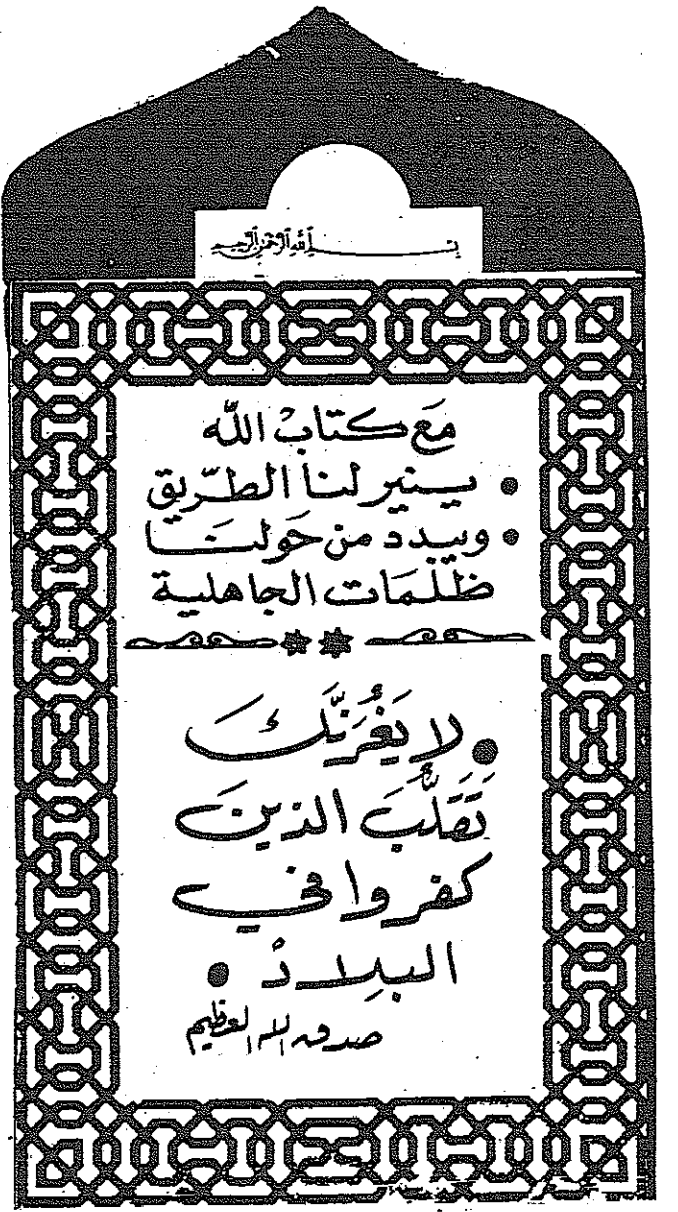 بسم الله الرحمن الرحيم
مَع كتابْ الله
• يسنير لنا الطّريق
• ويبدد من حَولنَا
ظلمَات الجاهلية
• لا يَغُرَنَّكَ
تَقَلُّبَ الذينَ
كفروا في
البِلادْ •
صدق الله العظيم